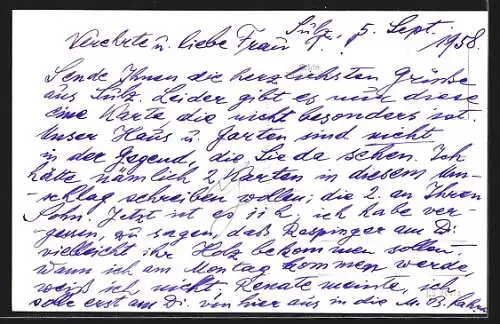 Sulz, 5. Sept. 1958.
Verehrte u. liebe Frau
Sende Ihnen die herzlichsten Grüsse
aus Sulz. Leider gibt es nur diese
eine Karte, die nicht besonders ist.
Unser Haus u. Garten sind nicht
in der Gegend, die Sie da sehen. Ich
hätte nämlich 2 Karten in diesem Um-
-schlag schreiben wollen; die 2. an Ihren
Sohn. Jetzt ist es 11 h, ich habe ver-
gessen, zu sagen, daß Raspinger am Di.
vielleicht ihr Holz bekommen sollen.
Wann ich am Montag kommen werde,
weiß ich nicht. Renate meinte, ich
solle erst am Di. von hier aus in die M. B. fahren